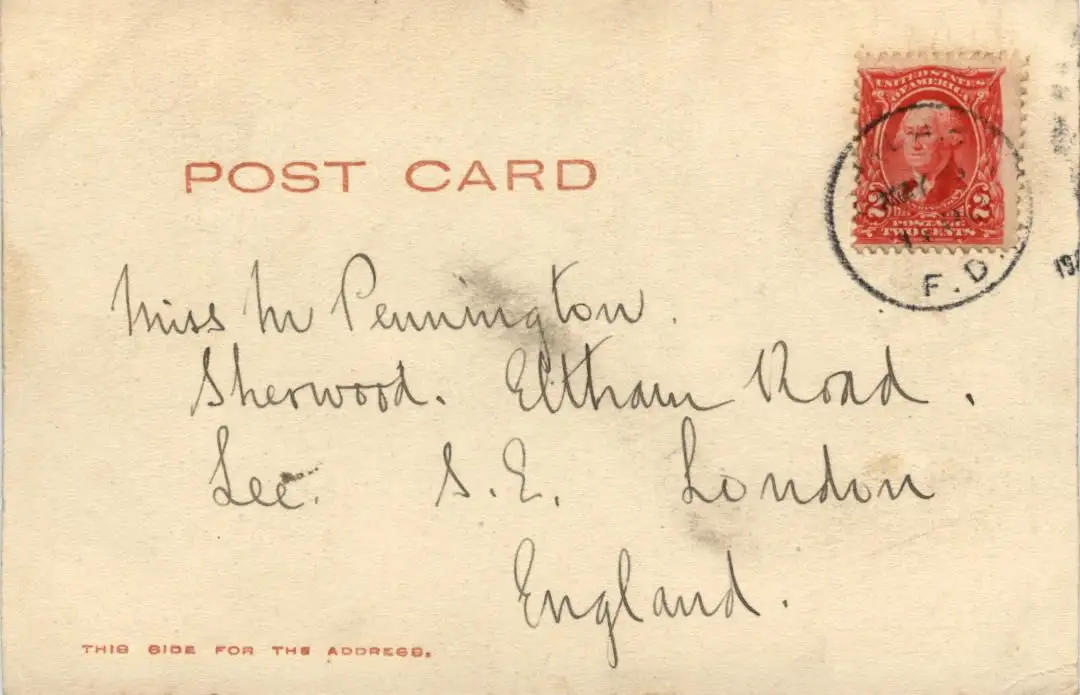 UNITED STATES
OF AMERICA
2 2
POSTAGE
TWO CENTS
F.D.
POST CARD
Miss M Pennington.
Sherwood. Eltham Road.
Lee. S.E. London
England.
THIS SIDE FOR THE ADDRESS.